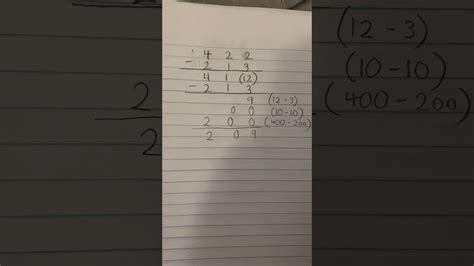 4 2 2
- 2 1 3
4 1 (12)
- 2 1 3
9 (12-3)
0 0 (10-10)
2 0 0 (400-200)
2 0 9
(12-3)
(10-10)
(400-200)
2
2